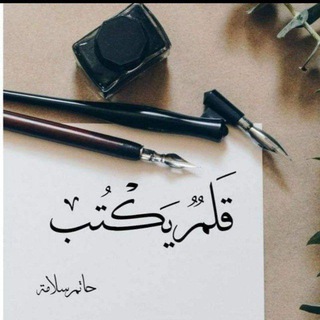 قَلَمٌ يَكْتُب
حاتم سلامة